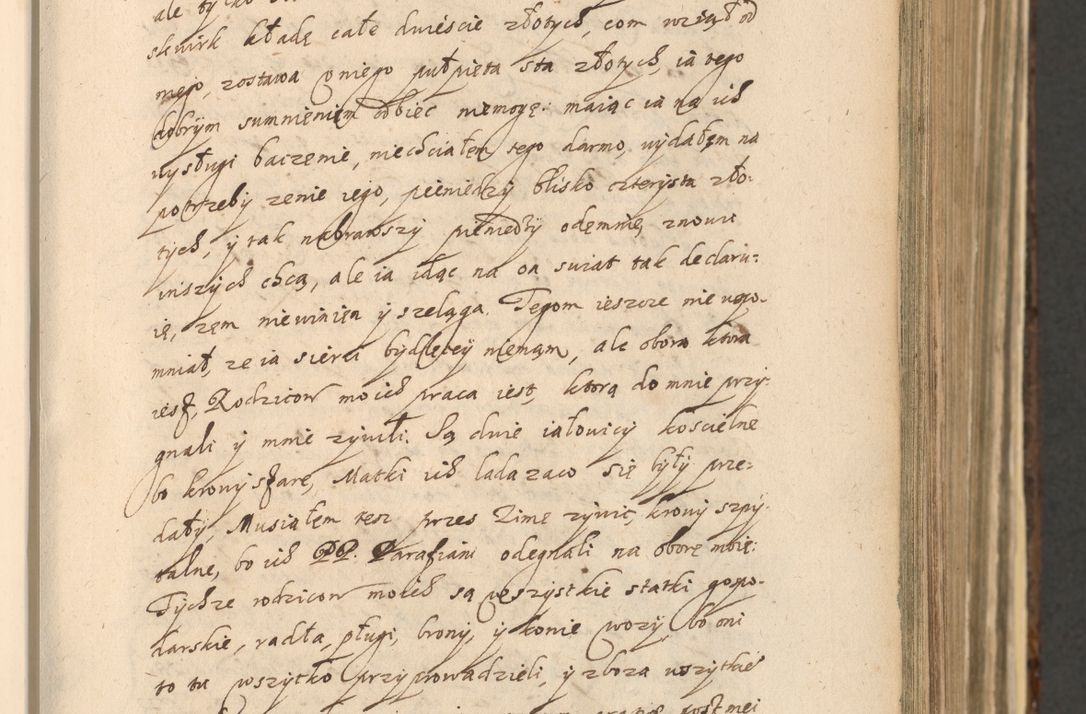 ale tylko
skwirk kładę całe dwieście złotych, com wziął od
niego, zostawa v niego pułpięta sta złotych, ia tego
dobrym sumnieniem obiec niemogę: maiąc ia na ich
wysługi baczenie, niechciałem tego darmo, wydałem na
potrzeby zenie iego, pieniędzy blisko czterysta zło-
tych, y tak nabrawszy pieniedzy odemnie, znowu
inszych chcą, ale ia idąc na on swiat tak declaru-
ię, zem niewinien y szeląga. Tegom ieszcze nie wspo-
mniał, ze ia siersci bydlęcey niemam, ale obora ktora
iest, Rodzicow moich praca iest, ktorą do mnie przy-
gnali y mnie zywili. Są dwie iałowicy koscielne
bo krowy stare, Matki ich lada zaco się były prze-
dały, Musiałem tesz przes Zimę zywic, krowy szpy-
talne, bo ich PP. Parafiani odegnali na oborę moię:
Tychze rodzicow moich są wszystkie statki gospo-
darskie, radła, pługi, brony, y konie wozy, bo oni
to tu wszytko przyprowadzieli, y zboza wszytkie